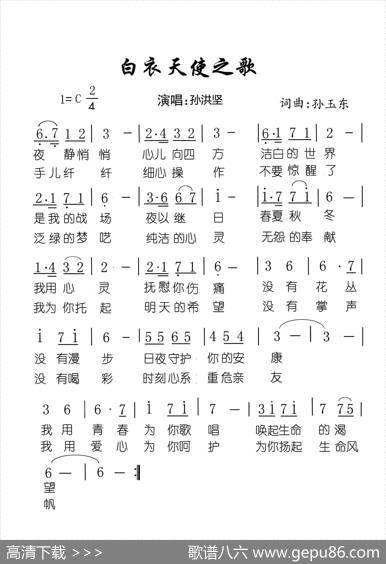 白衣天使之歌
1=C 2/4 演唱:孙洪坚 词曲:孙玉东
6·7 1 2 | 3 — | 2·4 3 2 | 3 — | 6·1 7 1 | 2 — |
夜 静悄 悄 心儿 向四 方 洁白 的 世 界
手儿 纤 纤 细心 操 作 不要 惊醒 了
2·1 7 1 | 6 — | 3·6 6 7 | i — | i·7 7 i | 6 — |
是我 的战 场 夜以 继 日 春夏 秋 冬
泛绿 的梦 呓 纯洁 的心 灵 无怨 的奉 献
1·4 3 2 | 3 — | 2·1 7 1 | 6 — | 3 6 | 6·7 5 |
我用 心 灵 抚慰 你伤 痛 没 有 花 丛
我为 你托 起 明天 的希 望 没 有 掌 声
i 7 i | 6 — | 5 5 6 5 | 4 5 4 | 3 — | 3 — |
没 有漫 步 日夜守护 你的安 康
没 有喝 彩 时刻心系 重危亲 友
3 6 | 6·7 | i 7 i | 3 — | i 7 i | 7 75 |
我 用 青 春 为 你歌 唱 唤起生命 的 渴
我 用 爱 心 为 你呵 护 为你扬起 生命风
6 — | 6 — :‖
望
帆
高清下载 >>> 歌谱八六 www.gepu86.com